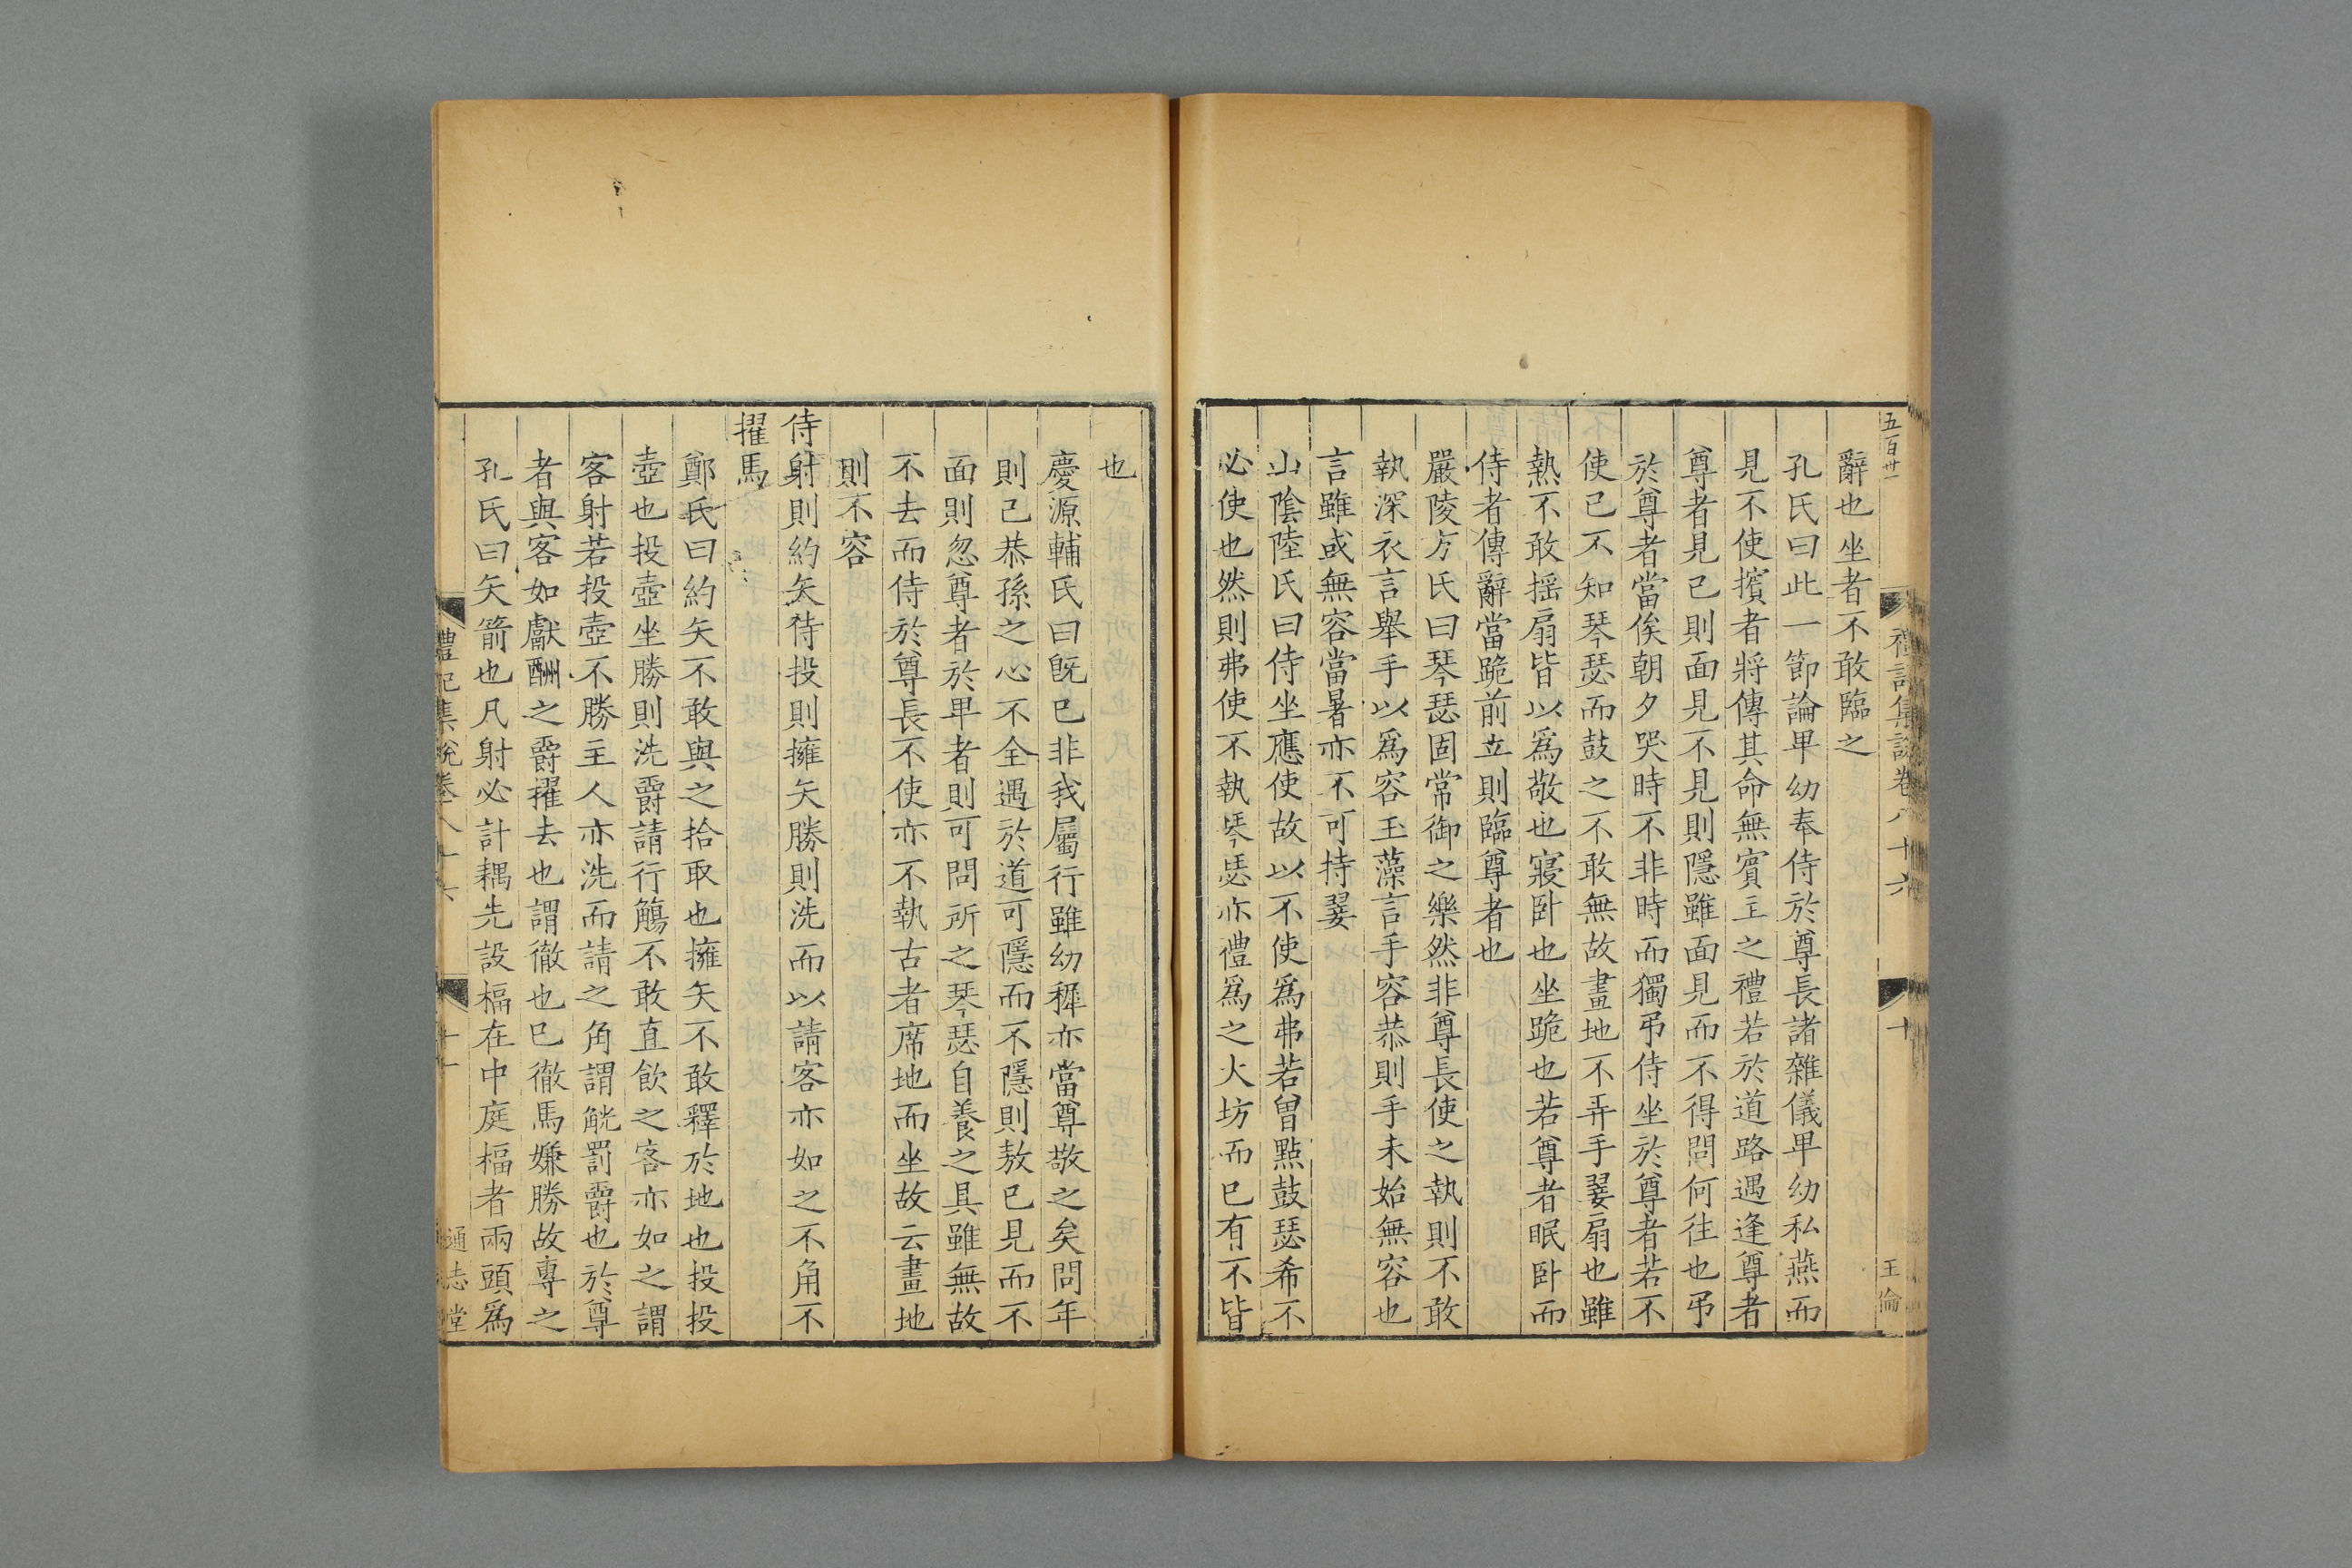 五百卅一
禮記集說卷八十六
十
王倫
辭也坐者不敢臨之
孔氏曰此一節論卑幼奉侍於尊長諸雜儀卑幼私燕而
見不使擯者將傳其命無賓主之禮若於道路遇逢尊者
尊者見已則面見不見則隱雖面見而不得問何往也弔
於尊者當俟朝夕哭時不非時而獨弔侍坐於尊者若不
使已不知琴瑟而鼓之不敢無故畫地不弄手翣扇也雖
熱不敢揺扇皆以爲敬也寢卧也坐跪也若尊者眠卧而
侍者傳辭當跪前立則臨尊者也
嚴陵方氏曰琴瑟固常御之樂然非尊長使之執則不敢
執深衣言舉手以爲容玉藻言手容恭則手未始無容也
言雖或無容當暑亦不可持翣
山隂陸氏曰侍坐應使故以不使爲弗若曾點鼓瑟希不
必使也然則弗使不執琴瑟亦禮爲之火坊而已有不皆
也
慶源輔氏曰旣已非我屬行雖幼穉亦當尊敬之矣問年
則已恭孫之心不全遇於道可隱而不隱則敖已見而不
面則忽尊者於卑者則可問所之琴瑟自養之具雖無故
不去而侍於尊長不使亦不執古者席地而坐故云畫地
則不容
侍射則約矢侍投則擁矢勝則洗而以請客亦如之不角不
擢馬
鄭氏曰約矢不敢與之拾取也擁矢不敢釋於地也投投
壺也投壺坐勝則洗爵請行觴不敢直飲之客亦如之謂
客射若投壺不勝主人亦洗而請之角謂觥罰爵也於尊
者與客如獻酬之爵擢去也謂徹也已徹馬嫌勝故專之
孔氏曰矢箭也凡射必計耦先設楅在中庭楅者兩頭爲
禮記集說卷八十六
十一
通志堂